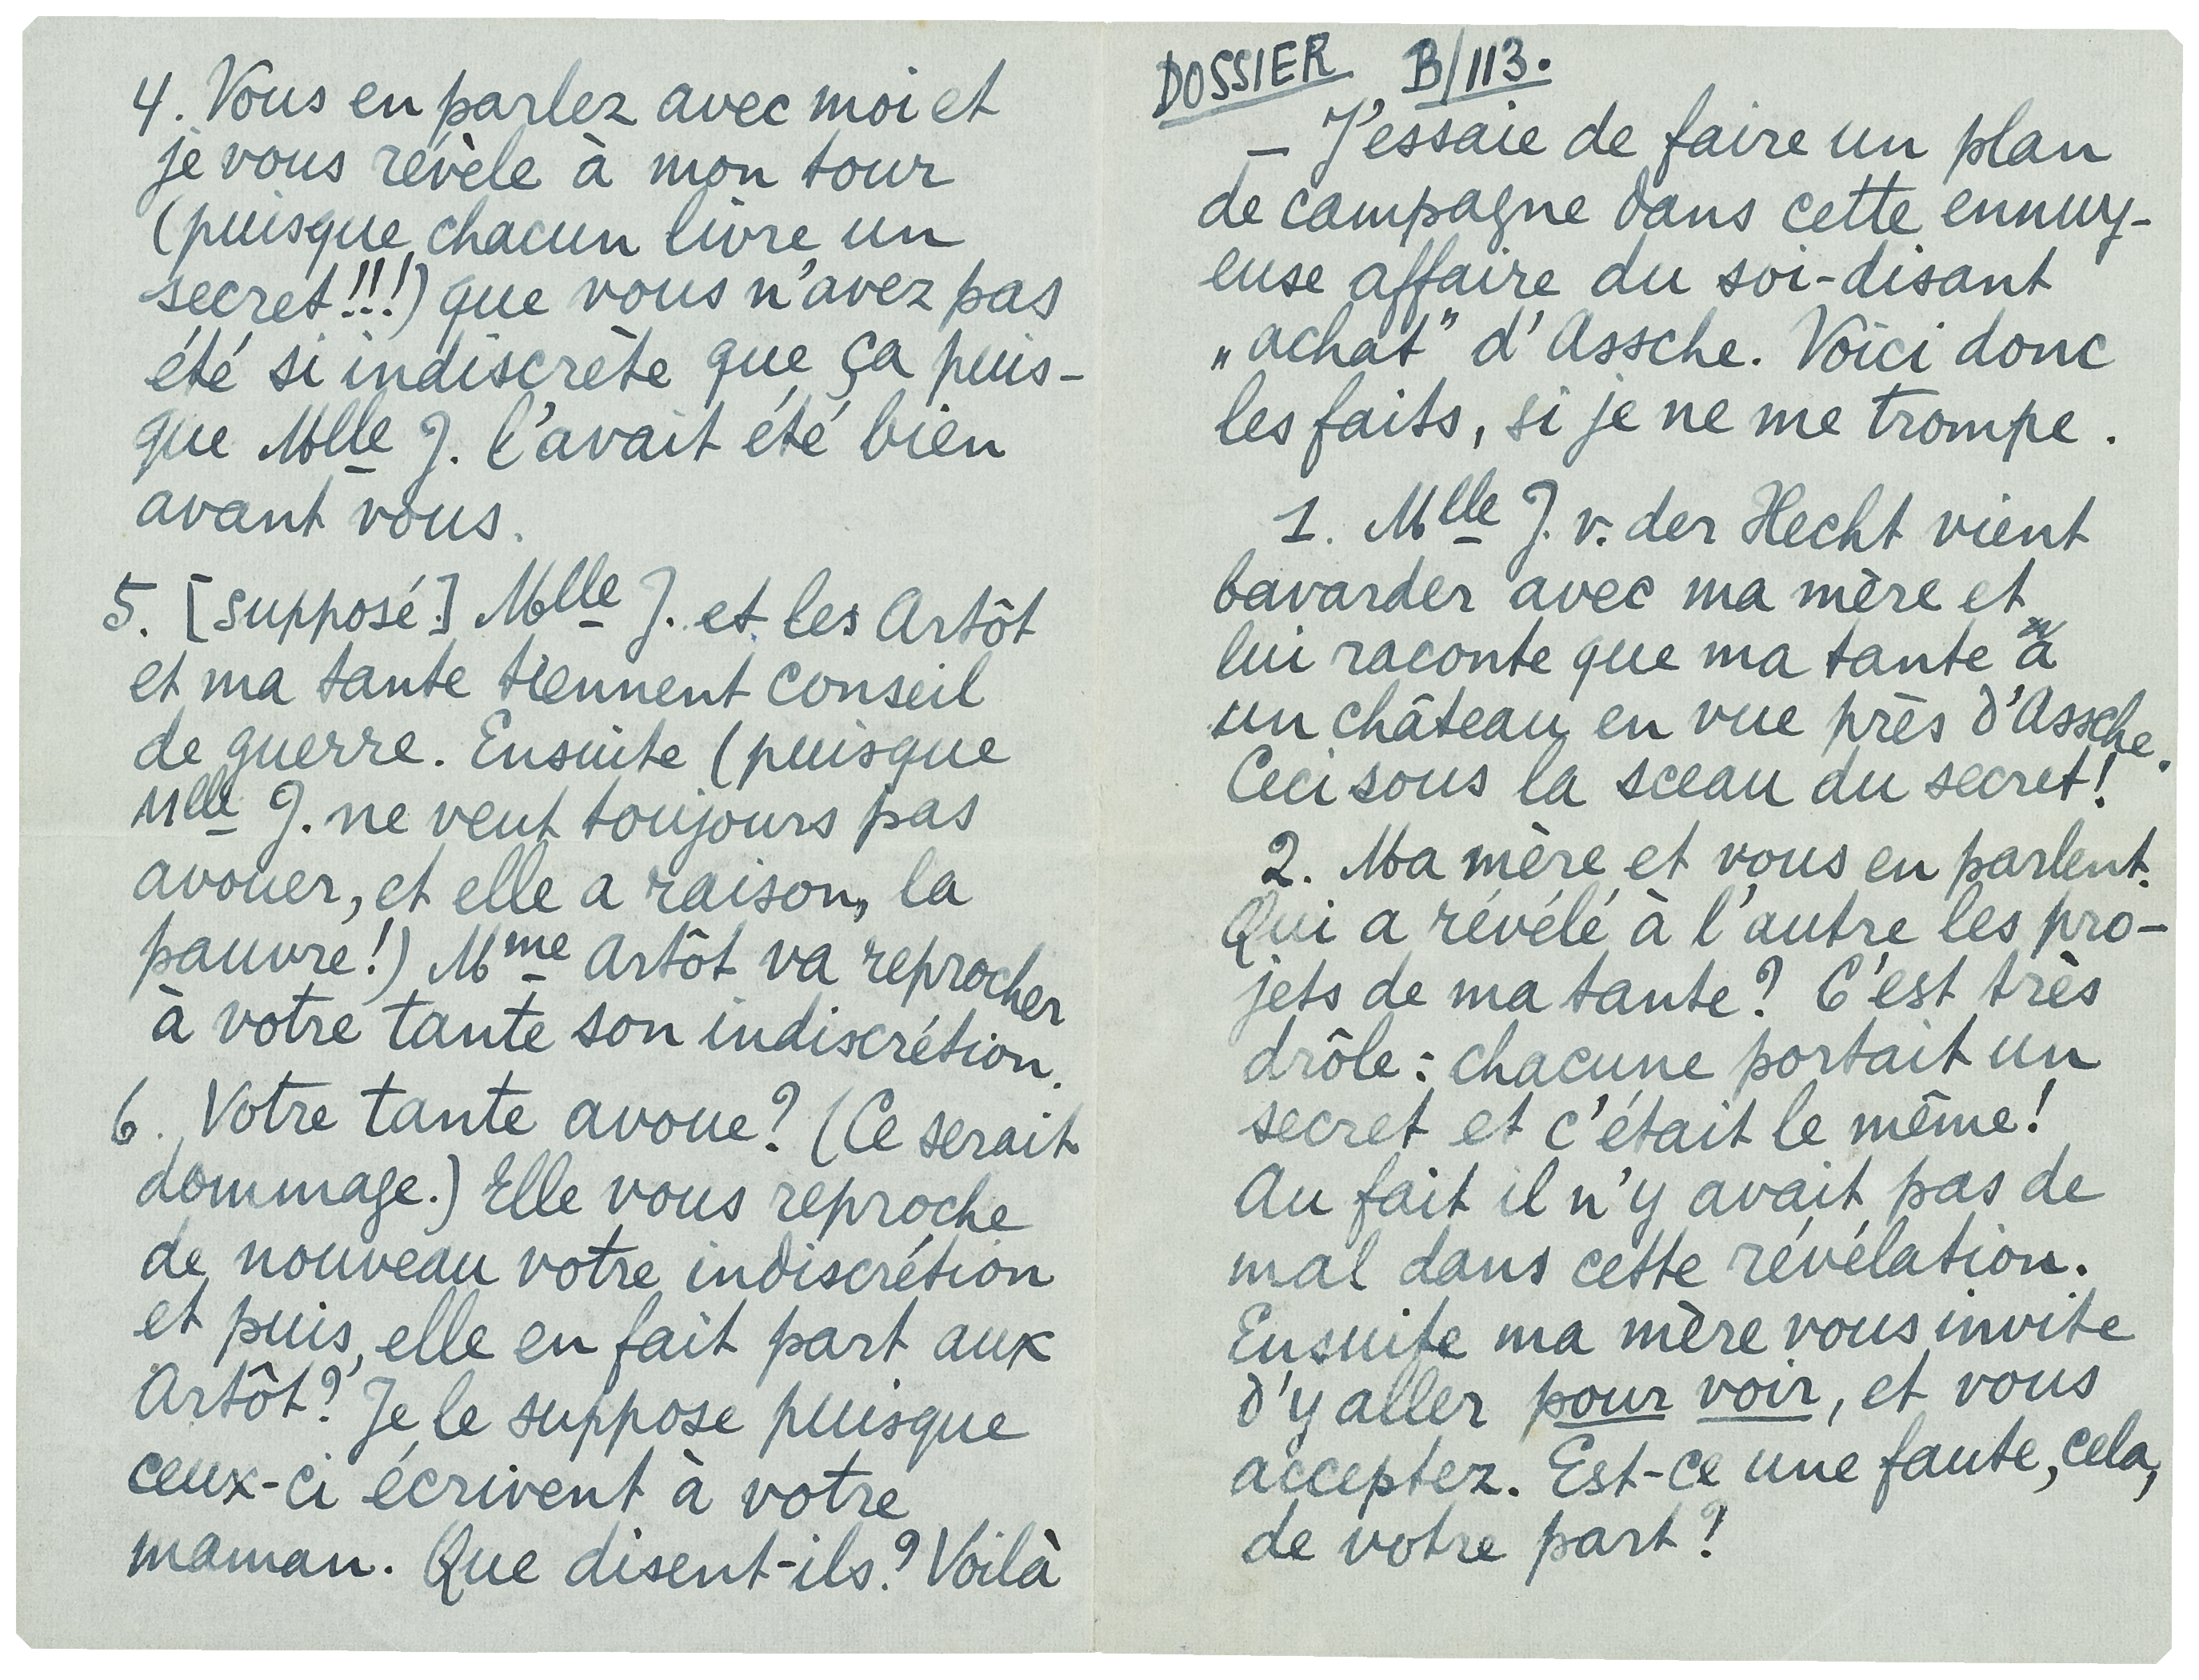 DOSSIER B/113.
– J'essaie de faire un plan
de campagne dans cette ennuy-
euse affaire du soi-disant
„achat" d'Assche. Voici donc
les faits, si je ne me trompe.
1. Mlle J. v. der Hecht vient
bavarder avec ma mère et
lui raconte que ma tante a
un château en vue près d'Assche.
Ceci sous la sceau du secret!
2. Ma mère et vous en parlent.
Qui a révélé à l'autre les pro-
jets de ma tante? C'est très
drôle: chacune portait un
secret et c'était le même!
Au fait il n'y avait pas de
mal dans cette révélation.
Ensuite ma mère vous invite
d'y aller pour voir, et vous
acceptez. Est-ce une faute, cela,
de votre part?
4. Vous en parlez avec moi et
je vous révèle à mon tour
(puisque chacun livre un
secret!!!) que vous n'avez pas
été si indiscrète que ça puis-
que Mlle J. l'avait été bien
avant vous.
5. [supposé] Mlle J. et les Artôt
et ma tante tiennent conseil
de guerre. Ensuite (puisque
Mlle J. ne veut toujours pas
avouer, et elle a raison, la
pauvre!) Mme Artôt va reprocher
à votre tante son indiscrétion.
6. Votre tante avoue? (Ce serait
dommage.) Elle vous reproche
de nouveau votre indiscrétion
et puis, elle en fait part aux
Artôt? Je le suppose puisque
ceux-ci écrivent à votre
maman. Que disent-ils? Voilà